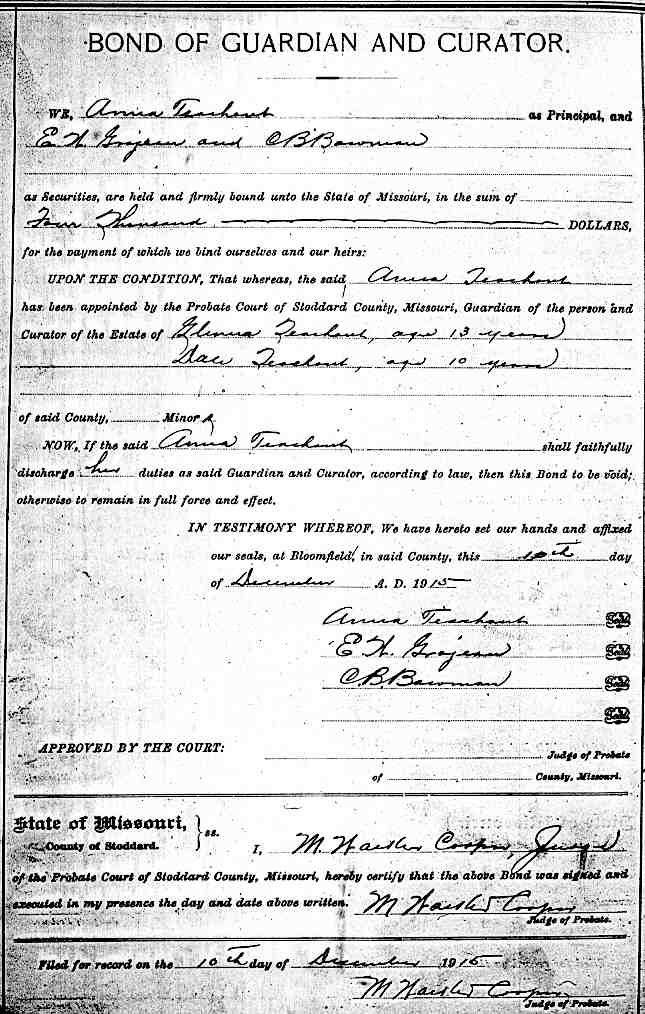 BOND OF GUARDIAN AND CURATOR.
WE, Anna Teachout as Principal, and
E. H. Grojean and C B Bowman
as Securities, are held and firmly bound unto the State of Missouri, in the sum of
Four Thousand DOLLARS,
for the payment of which we bind ourselves and our heirs:
UPON THE CONDITION, That whereas, the said Anna Teachout
has been appointed by the Probate Court of Stoddard County, Missouri, Guardian of the person and
Curator of the Estate of Glenna Teachout, age 13 years
Dale Teachout, age 10 years
of said County, Minors
NOW, If the said Anna Teachout shall faithfully
discharge her duties as said Guardian and Curator, according to law, then this Bond to be void;
otherwise to remain in full force and effect.
IN TESTIMONY WHEREOF, We have hereto set our hands and affixed
our seals, at Bloomfield, in said County, this 10th day
of December A. D. 1915
Anna Teachout Seal
E H. Grojean Seal
C B Bowman Seal
Seal
APPROVED BY THE COURT:
Judge of Probate
of County, Missouri.
State of Missouri,
County of Stoddard. } ss.
I, M. Cooper, Judge
of the Probate Court of Stoddard County, Missouri, hereby certify that the above Bond was signed and
executed in my presence the day and date above written. M Cooper
Judge of Probate.
Filed for record on the 10th day of December 1915
M Cooper
Judge of Probate.